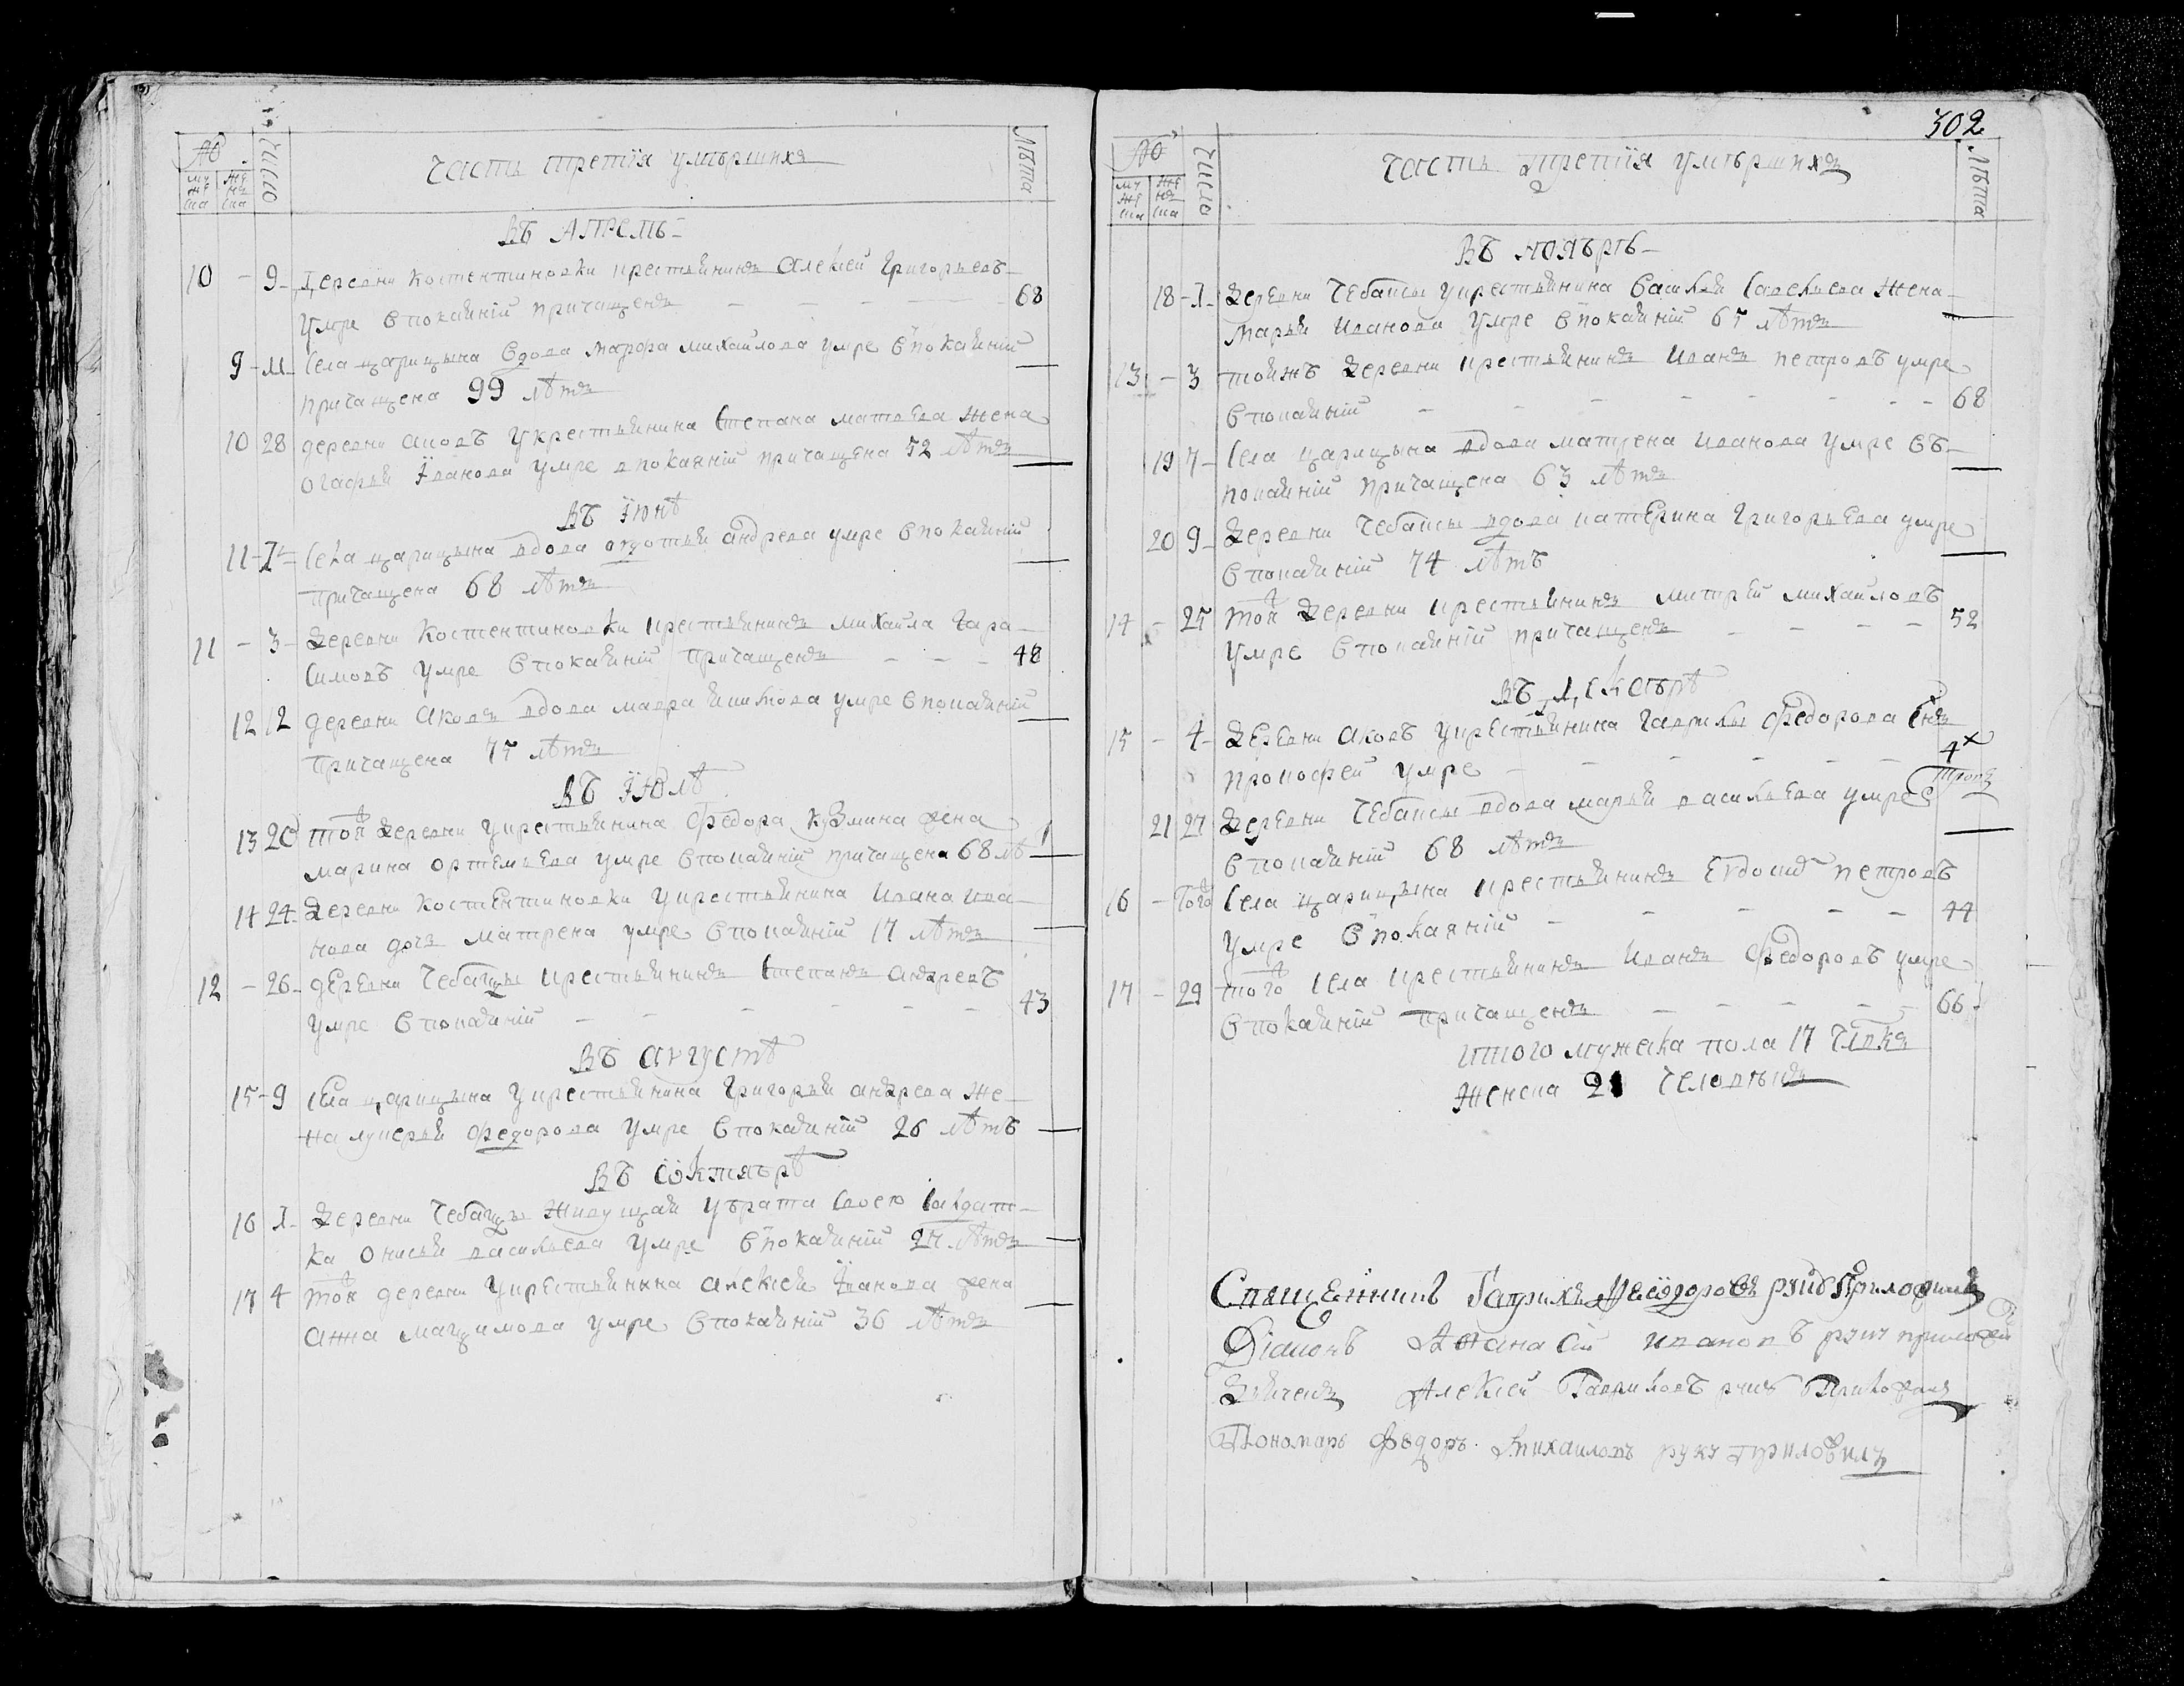 №
муже
ска
жен
ска
число
Часть третїя умѣршихъ
Лѣта
Въ Апрелѣ
10 - 9 Деревни Костентиновки крестьянинъ Алексей Григорьевъ
умре в покаянїи причащенъ - - - - 68
9 - 11 Села Царицына вдова Марфа Михайлова умре в покаянїи
причащена 99 лѣтъ
10 28 деревни Аковъ у крестьянина Степана Матвева жена
Огафья Їванова умре в покаянїи причащена 52 лѣтъ
Въ Їюнѣ
11 - 1 Села Царицына вдова Андрева умре в покаянїи
причащена 68 лѣтъ
11 - 3 Деревни Костентиновки крестьянинъ Михайла Гара
симовъ умре в покаянїи причащенъ - - - 48
12 12 деревни Аковъ вдова Мавра Никитова умре в покаянїи
причащена 75 лѣтъ
Въ Їюлѣ
13 20 той деревни у крестьянина Федора Кузмина жена
Марина Ортемьева умре в покаянїи причащена 68 лѣ
14 24 Деревни Костентиновки у крестьянина Ивана Ива
нова дочь Матрена умре в покаянїи 17 лѣтъ
12 - 26 деревни Чебаксы крестьянинъ Степанъ Андревъ
умре в покаянїи - - - - - 43
Въ Августѣ
15 - 9 Села Царицына у крестьянина Григорья Андрева же
на Лукерья Федорова умре в покаянїи 26 лѣтъ
Въ Октябрѣ
16 1 Деревни Чебаксы живущая у брата своею салдат
ка Онисья Васильева умре в покаянїи лѣтъ
17 4 той деревни у крестьянина Алексея Їванова жена
Анна Макцимова умре в покаянїи 36 лѣтъ
302
№
муже
ска
жен
ска
число
Часть третїя умѣршихъ
Лѣта
Въ Ноябрѣ
18 - 1 Деревни Чебаксы у крестьянина Василья Савельева жена
Марья Иванова умре в покаянїи 65 лѣтъ
13 - 3 тоижъ деревни крестьянинъ Иванъ Петровъ умре
в покаянїи - - - - - - 68
19 7 Села Царицына вдова Матрена Иванова умре въ
покаянїи причащена 63 лѣтъ
20 9 Деревни Чебаксы вдова Катерина Григорьева умре
в покаянїи 74 лѣтъ
14 - 25 той деревни крестьянинъ Митрей Михайловъ
умре в покаянїи причащенъ - - - - 52
Въ Декабрѣ
15 - 4 Деревни Аковъ у крестьянина Гаврилы Федорова снъ
Прокофей умре - - - - - 4х
21 27 Деревни Чебаксы вдова Марья Васильева умре
в покаянїи 68 лѣтъ
16 - того Села Царицына крестьянинъ Евдоким Петровъ
умре в покаянїи - - - - - 44
17 - 29 того села крестьянинъ Иванъ Федоровъ умре
в покаянїи причащенъ - - - - 66
итого мужеска пола 17 члвкъ
женска 21 человѣкъ
Священникъ Гаврилъ Феодоровъ приложилъ
Дїаконъ Афанасїи Ивановъ руку приложи
Дьячекъ Алексей Гавриловъ руку приложилъ
Пономарь Федоръ Михаиловъ руку приложилъ